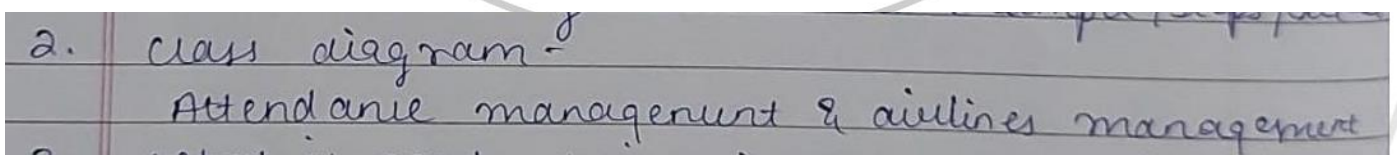 2. class diagram -
Attendance management & airlines management